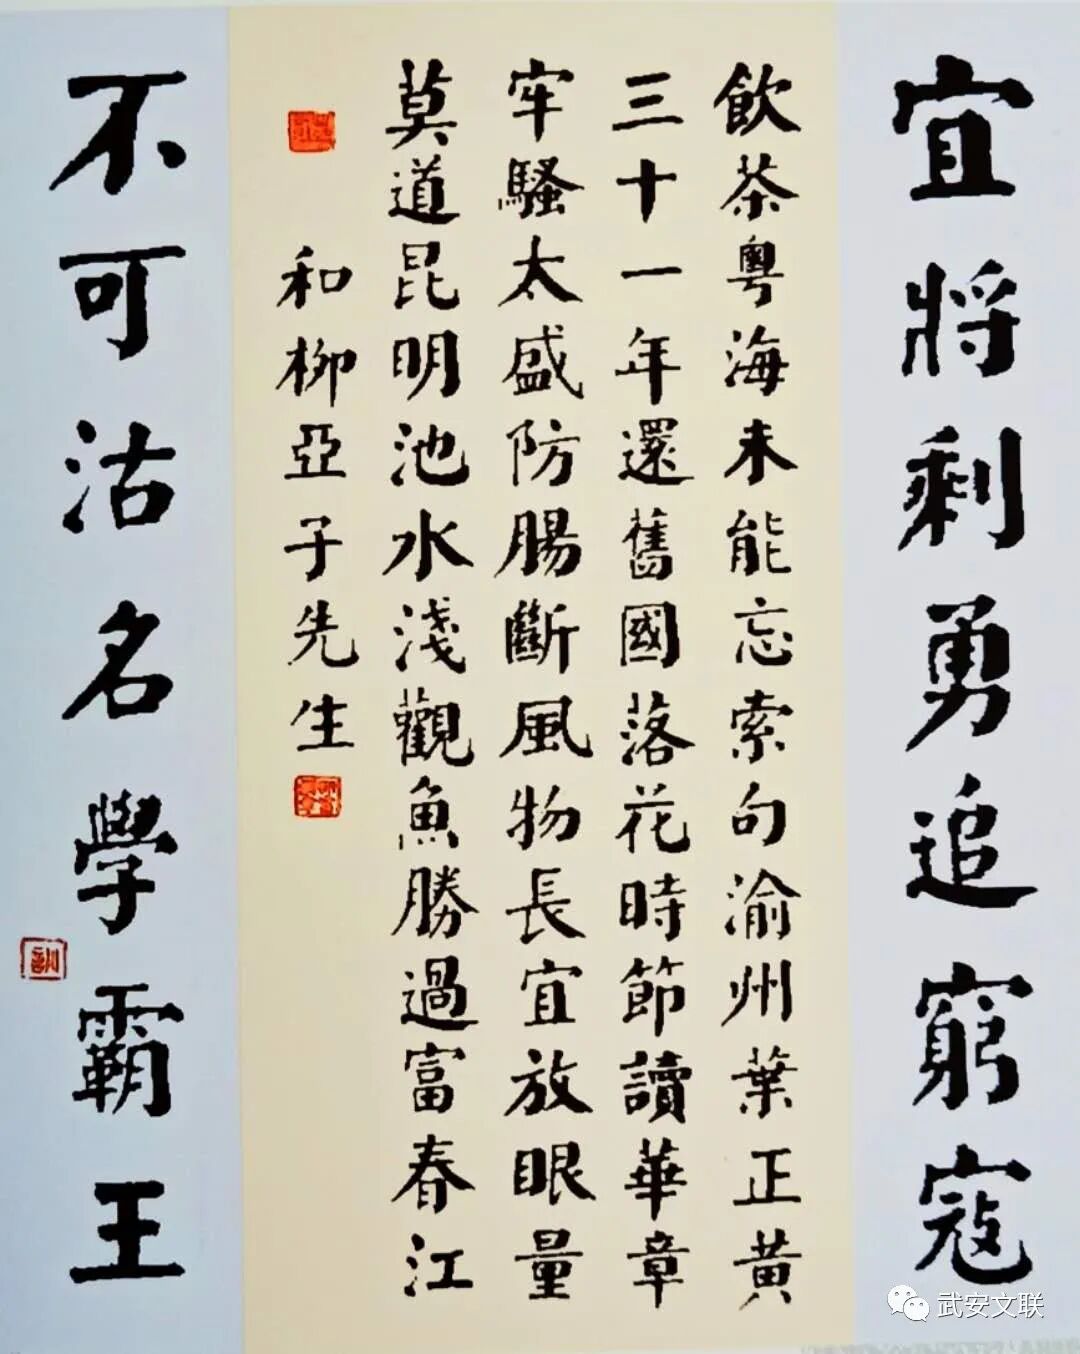 宜將剩勇追窮寇
飲茶粵海未能忘索句渝州葉正黃
三十一年還舊國落花時節讀華章
牢騷太盛防腸斷風物長宜放眼量
莫道昆明池水淺觀魚勝過富春江
和柳亞子先生
不可沽名學霸王
武安文联